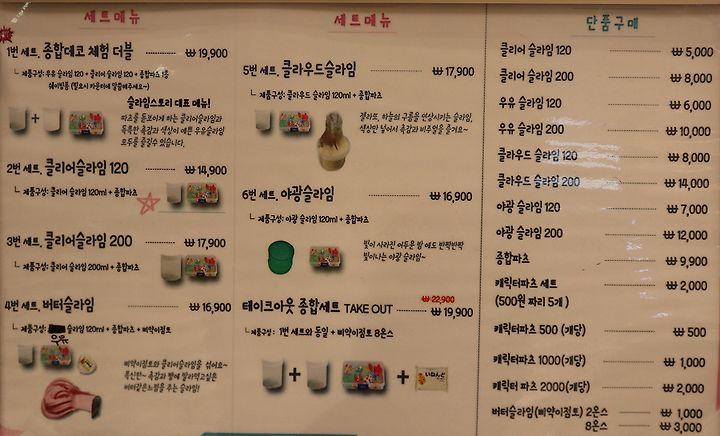 세트메뉴
1번 세트. 종합데코 체험 더블 ₩ 19,900
제품구성: 우유 슬라임 120 + 클리어 슬라임 120 + 종합파츠 1종
쉐이빙폼 (필요시 카운터에 말씀해주세요~)
슬라임스토리 대표 메뉴!
파츠를 돋보이게 하는 클리어슬라임과
독특한 촉감과 색상이 예쁜 우유슬라임
모두를 즐길수 있습니다.
2번 세트. 클리어슬라임 120 ₩ 14,900
제품구성: 클리어 슬라임 120ml + 종합파츠
3번 세트. 클리어슬라임 200 ₩ 17,900
제품구성: 클리어 슬라임 200ml + 종합파츠
4번 세트. 버터슬라임 ₩ 16,900
제품구성: 슬라임 120ml + 종합파츠 + 삐약이점토
우유
삐약이점토와 클리어슬라임을 섞어요~
폭신한~ 촉감과 빵에 발라먹고싶은
버터같은느낌을 주는 슬라임!
세트메뉴
5번 세트. 클라우드슬라임 ₩ 17,900
제품구성: 클라우드 슬라임 120ml + 종합파츠
하늘의 구름을 연상시키는 슬라임,
색상만 넣어서 촉감과 비주얼을 즐겨요~
6번 세트. 야광슬라임 ₩ 16,900
제품구성: 야광 슬라임 120ml + 종합파츠
빛이 사라진 어두운 밤 에도 반짝반짝
빛이나는 야광 슬라임~
₩ 22,900
테이크아웃 종합세트 TAKE OUT ₩ 19,900
제품구성: 1번 세트와 동일 + 삐약이점토 8온스
단품구매
클리어 슬라임 120 ₩ 5,000
클리어 슬라임 200 ₩ 8,000
우유 슬라임 120 ₩ 6,000
우유 슬라임 200 ₩ 10,000
클라우드 슬라임 120 ₩ 8,000
클라우드 슬라임 200 ₩ 14,000
야광 슬라임 120 ₩ 7,000
야광 슬라임 200 ₩ 12,000
종합파츠 ₩ 9,900
캐릭터파츠 세트 ₩ 2,000
(500원 짜리 5개)
캐릭터파츠 500 (개당) ₩ 500
캐릭터파츠 1000(개당) ₩ 1,000
캐릭터 파츠 2000(개당) ₩ 2,000
버터슬라임(삐약이점토) 2온스 ₩ 1,000
8온스 ₩ 3,000